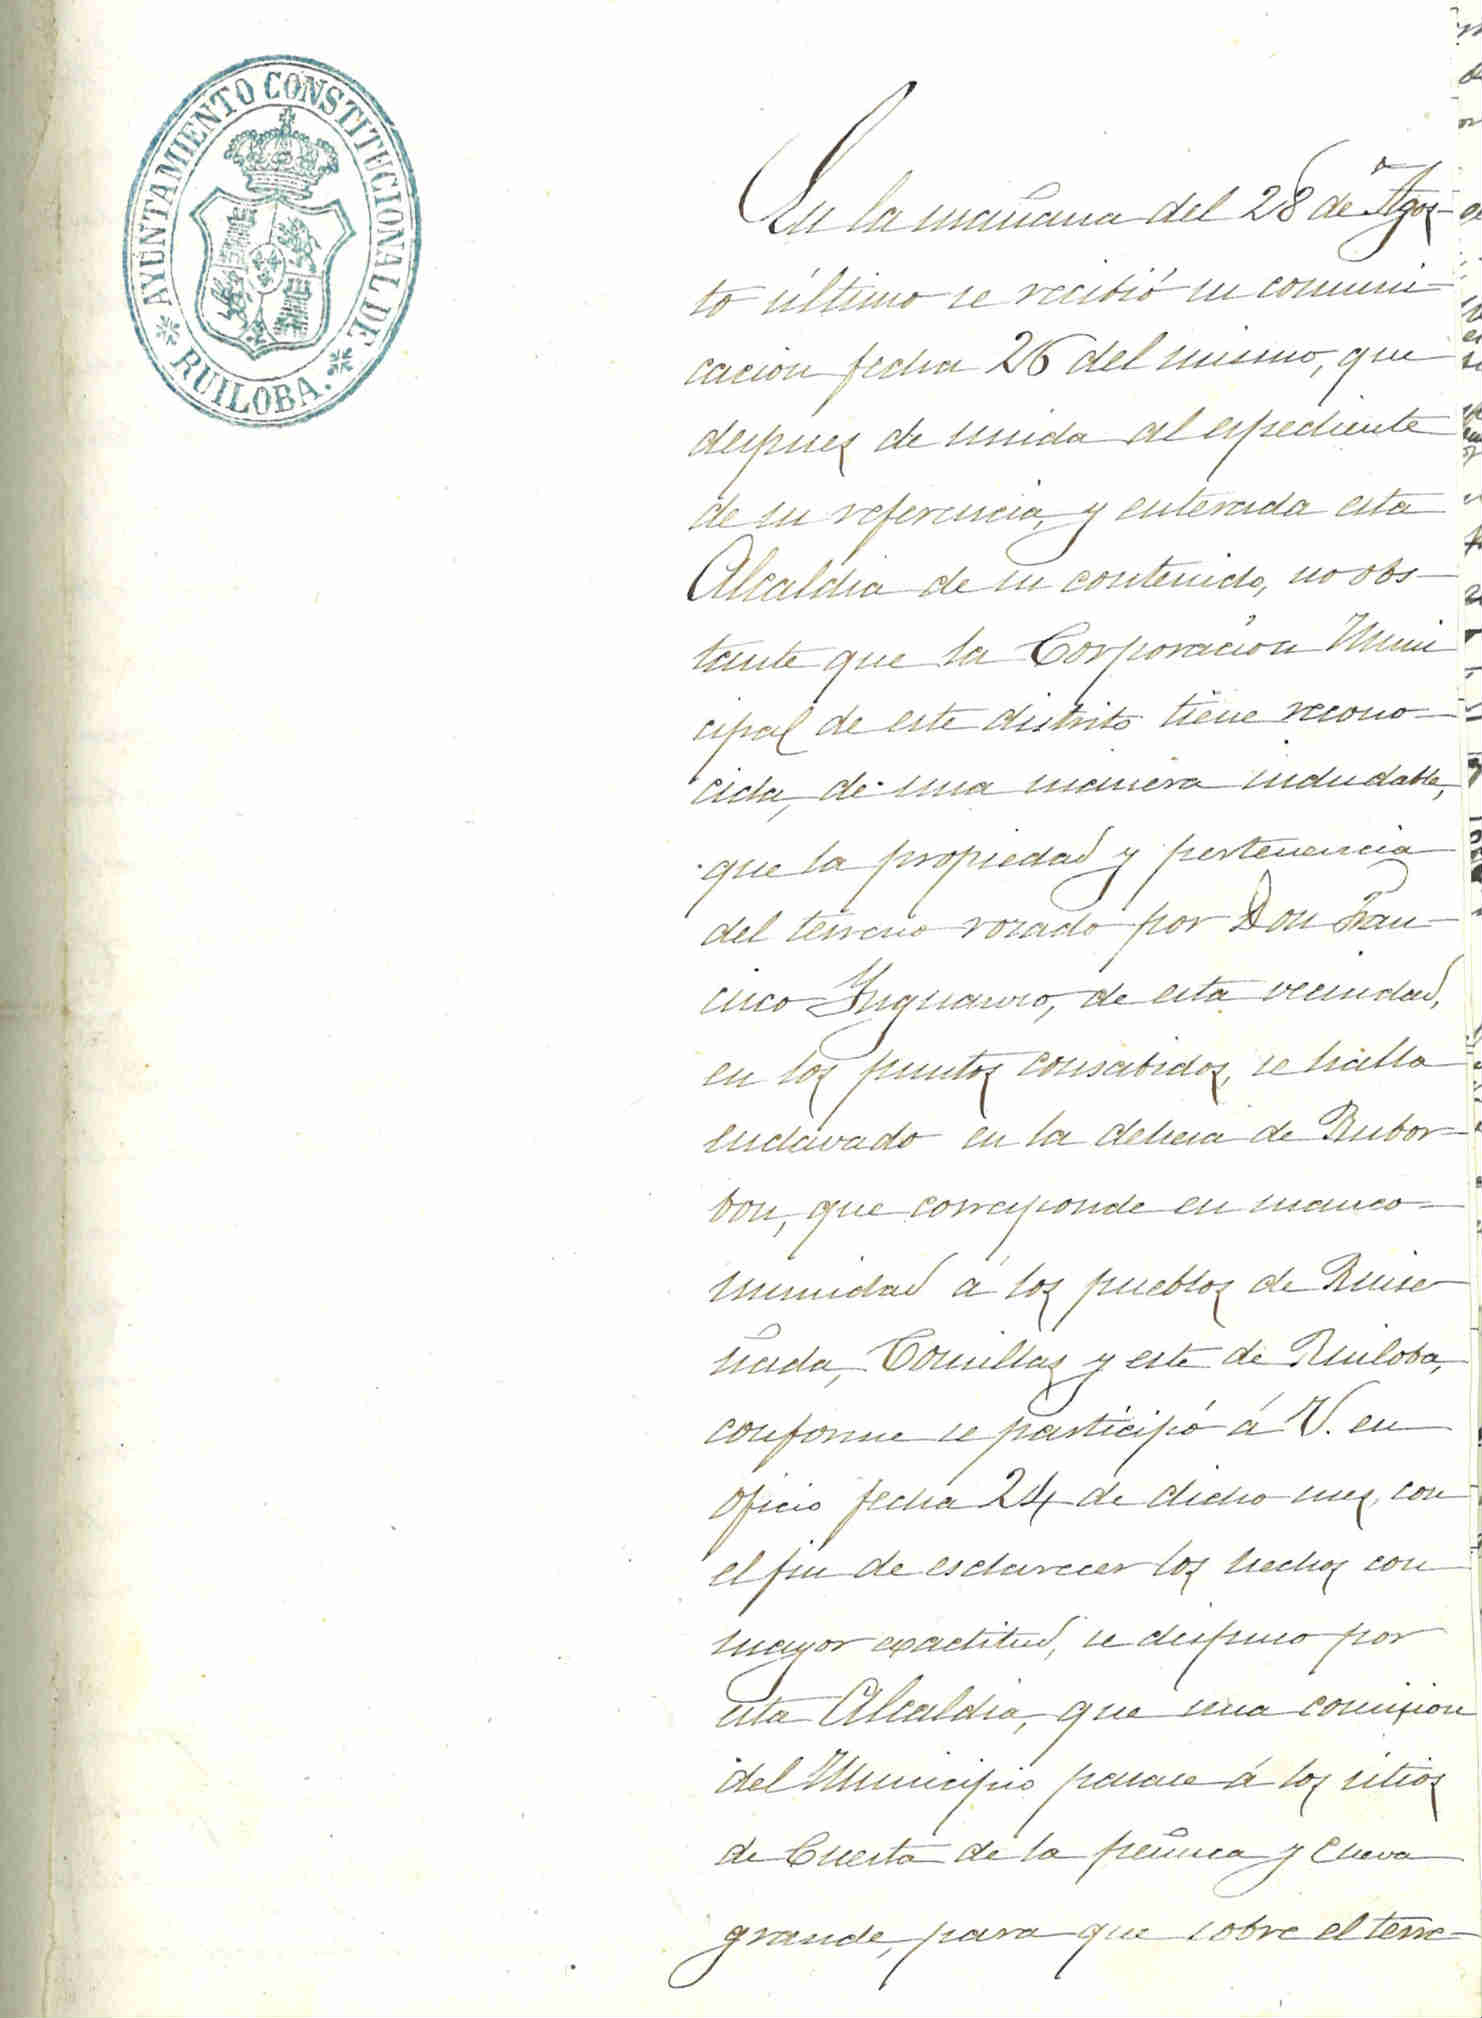 AYUNTAMIENTO CONSTITUCIONAL DE
* RUILOBA. *
En la mañana del 28 de Agos-
to último se recibió su comuni-
cacion fecha 26 del mismo, que
despues de unida al espediente
de su referencia, y enterada esta
Alcaldia de su contenido, no obs-
tante que la Corporacion Muni
cipal de este distrito tiene recono-
cida, de una manera indudable,
que la propiedad y pertenencia
del terreno rozado por Don Fran-
cisco Inguanzo, de esta vecindad,
en los puntos consabidos, se halla
enclavado en la dehesa de Rubor-
bon, que corresponde en manco-
munidad á los pueblos de Ruise
ñada, Comillas y este de Ruiloba,
conforme se participó á V. en
oficio fecha 24 de dicho mes, con
el fin de esclarecer los hechos con
mayor exactitud, se dispuso por
esta Alcaldia, que una comision
del Municipio pasase á los sitios
de Cuesta de la peñuca y Cueva
grande, para que sobre el terre-